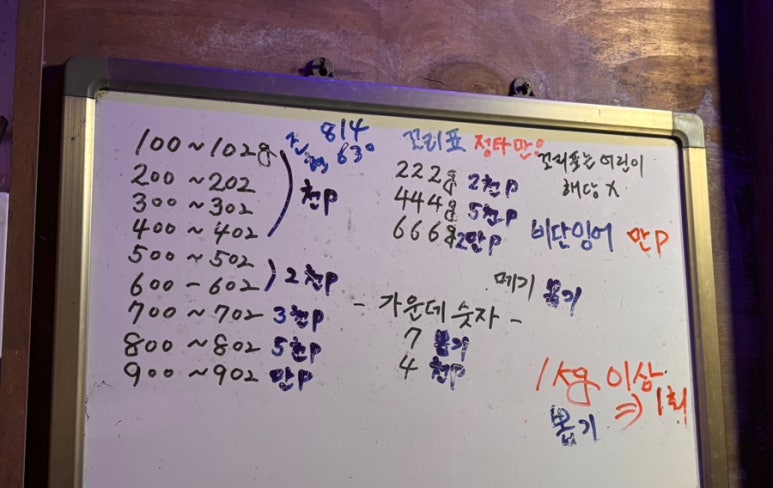 100~102g
200~202
300~302
400~402
천P
500~502
600-602
2천P
700~702 3천P
800~802 5천P
900~902 만P
814
630
꼬리표 정타만
꼬리표는 어린이
해당 X
222g 2천P
444g 5천P
666g 2만P
비단잉어 만P
메기 뽑기
- 가운데 숫자 -
7 뽑기
4 천P
1kg 이상
⇒ 1회
뽑기